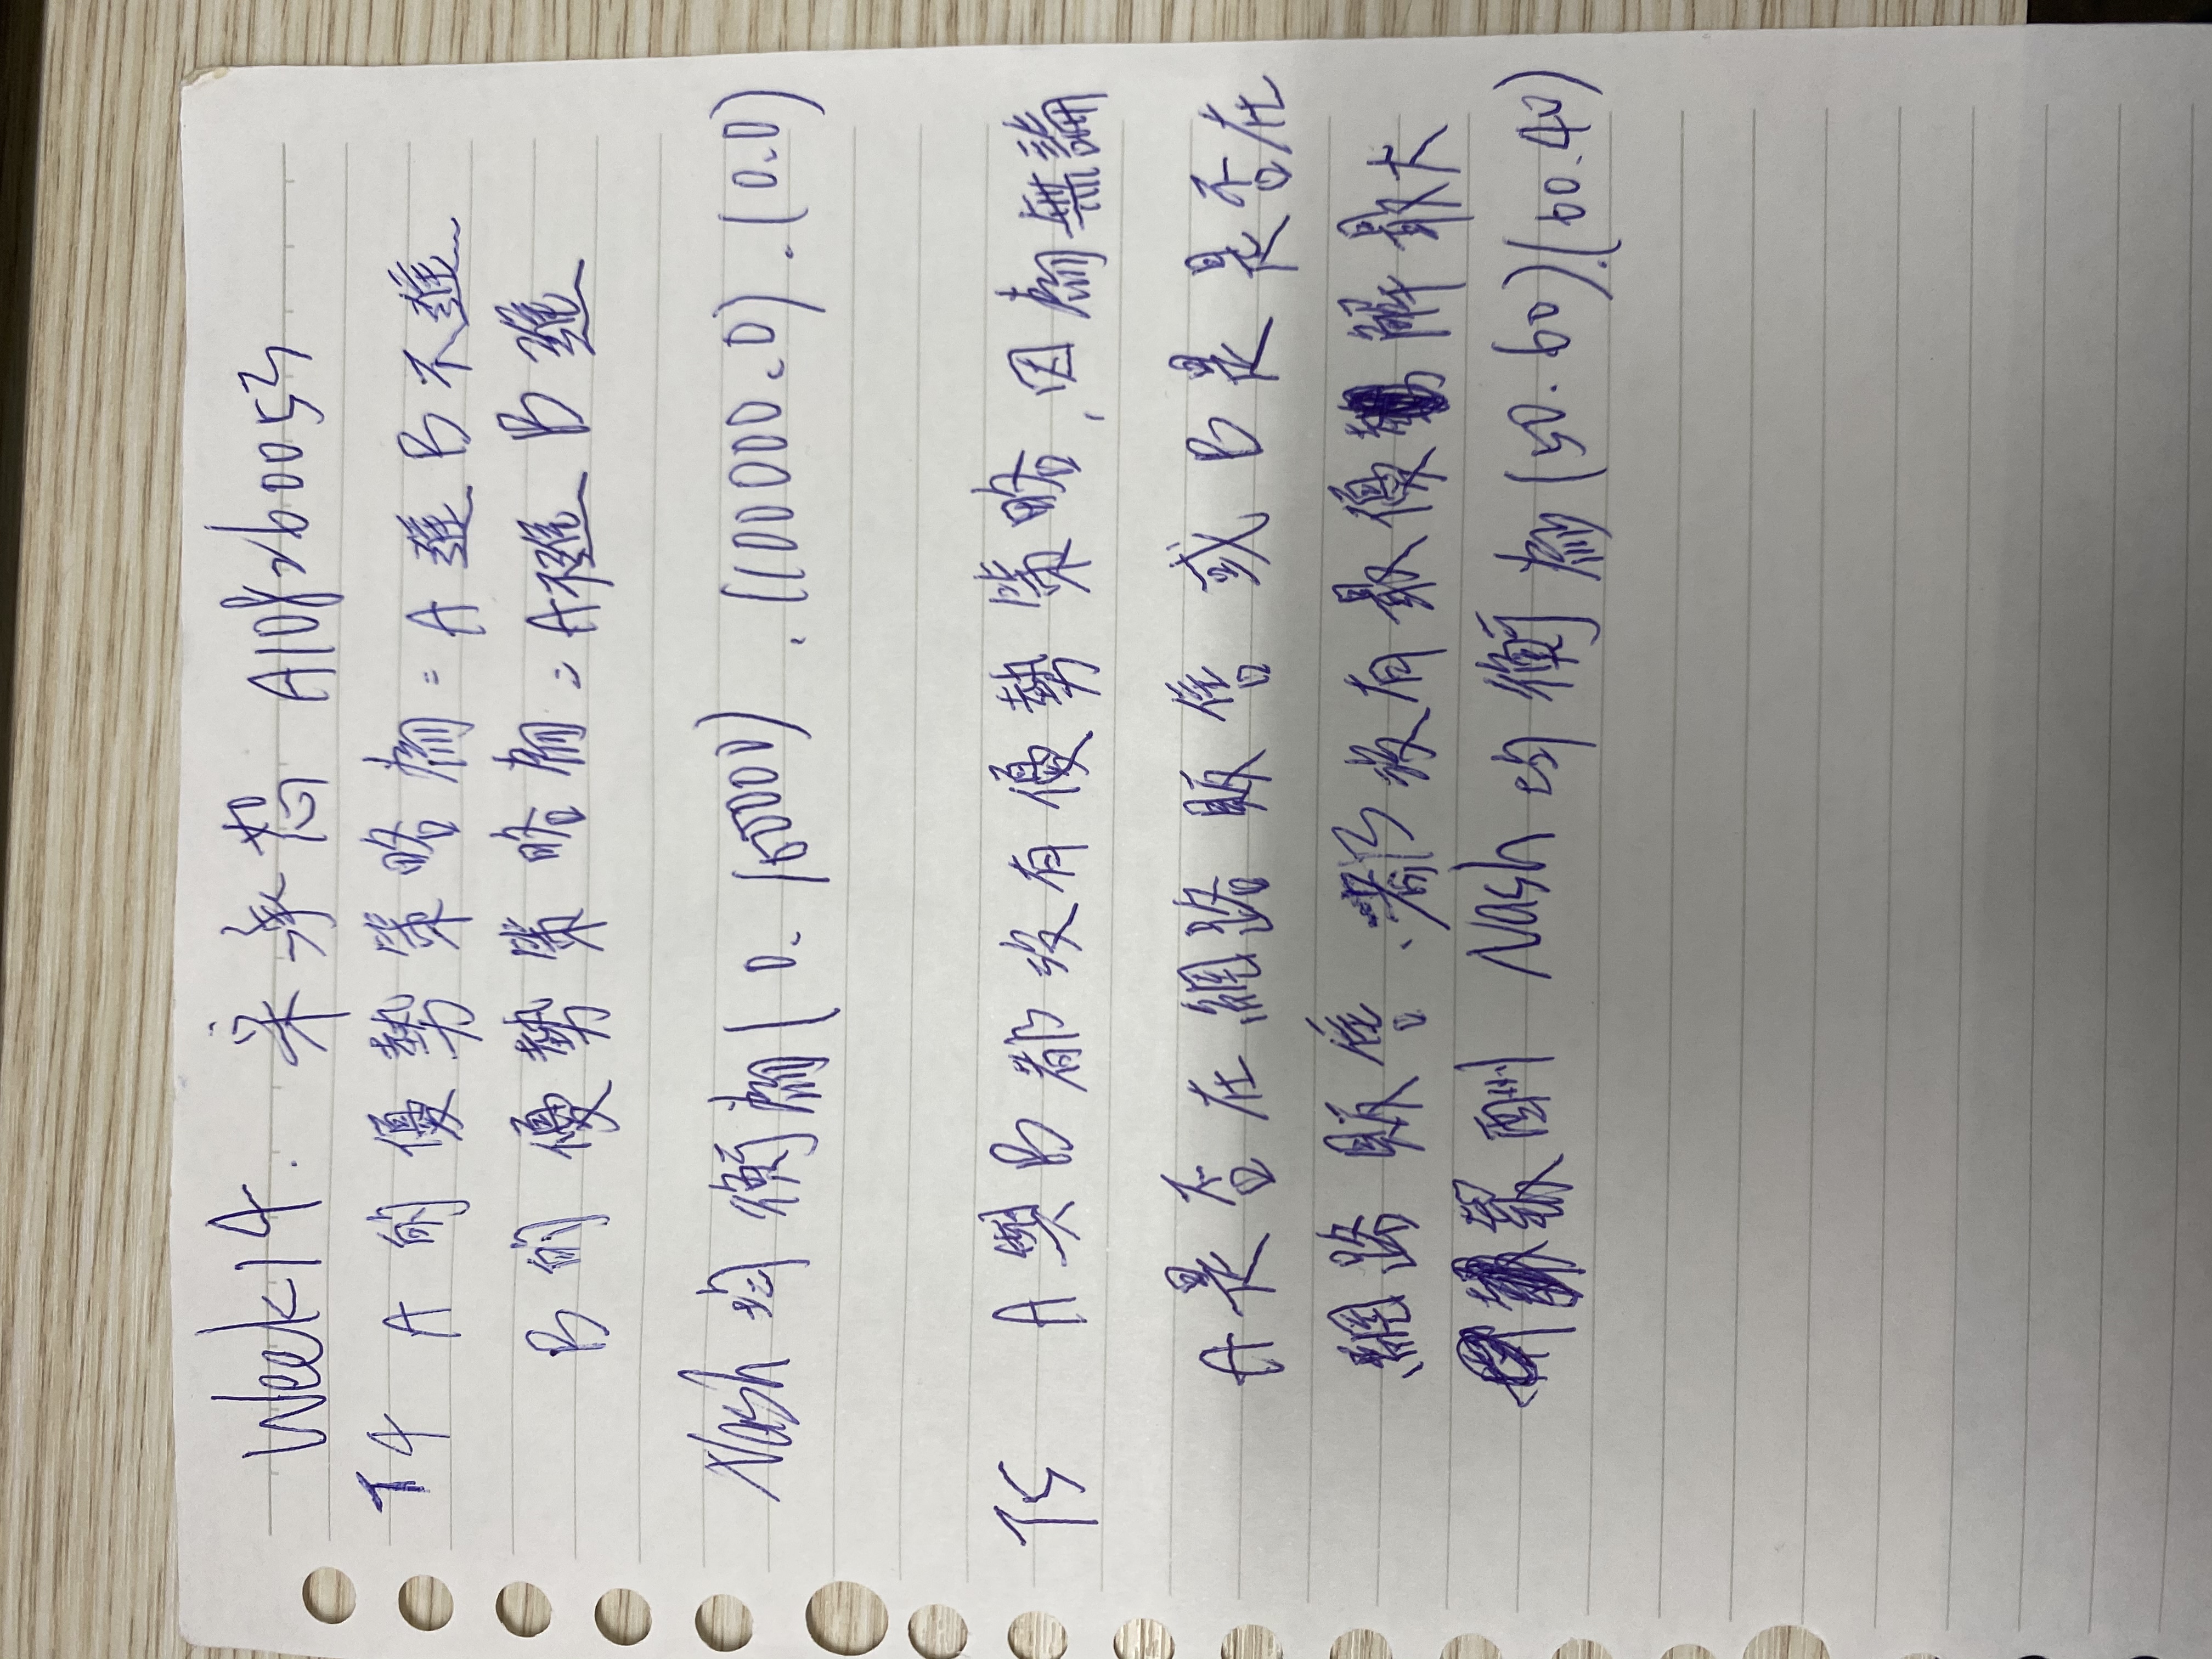 Week14. 承恕 A108260053
T4 A 的優勢策略為=A進B不進
B的優勢策略為=A不進B進
Nash均衡為(0.100000).(100000.0).(0.0)
T5 A與B都沒有優勢策略,因為無論
A是否在網路販售或B是是否在
網路販售.都沒有最優解最大
報酬 Nash均衡為(50.60).(60.40)